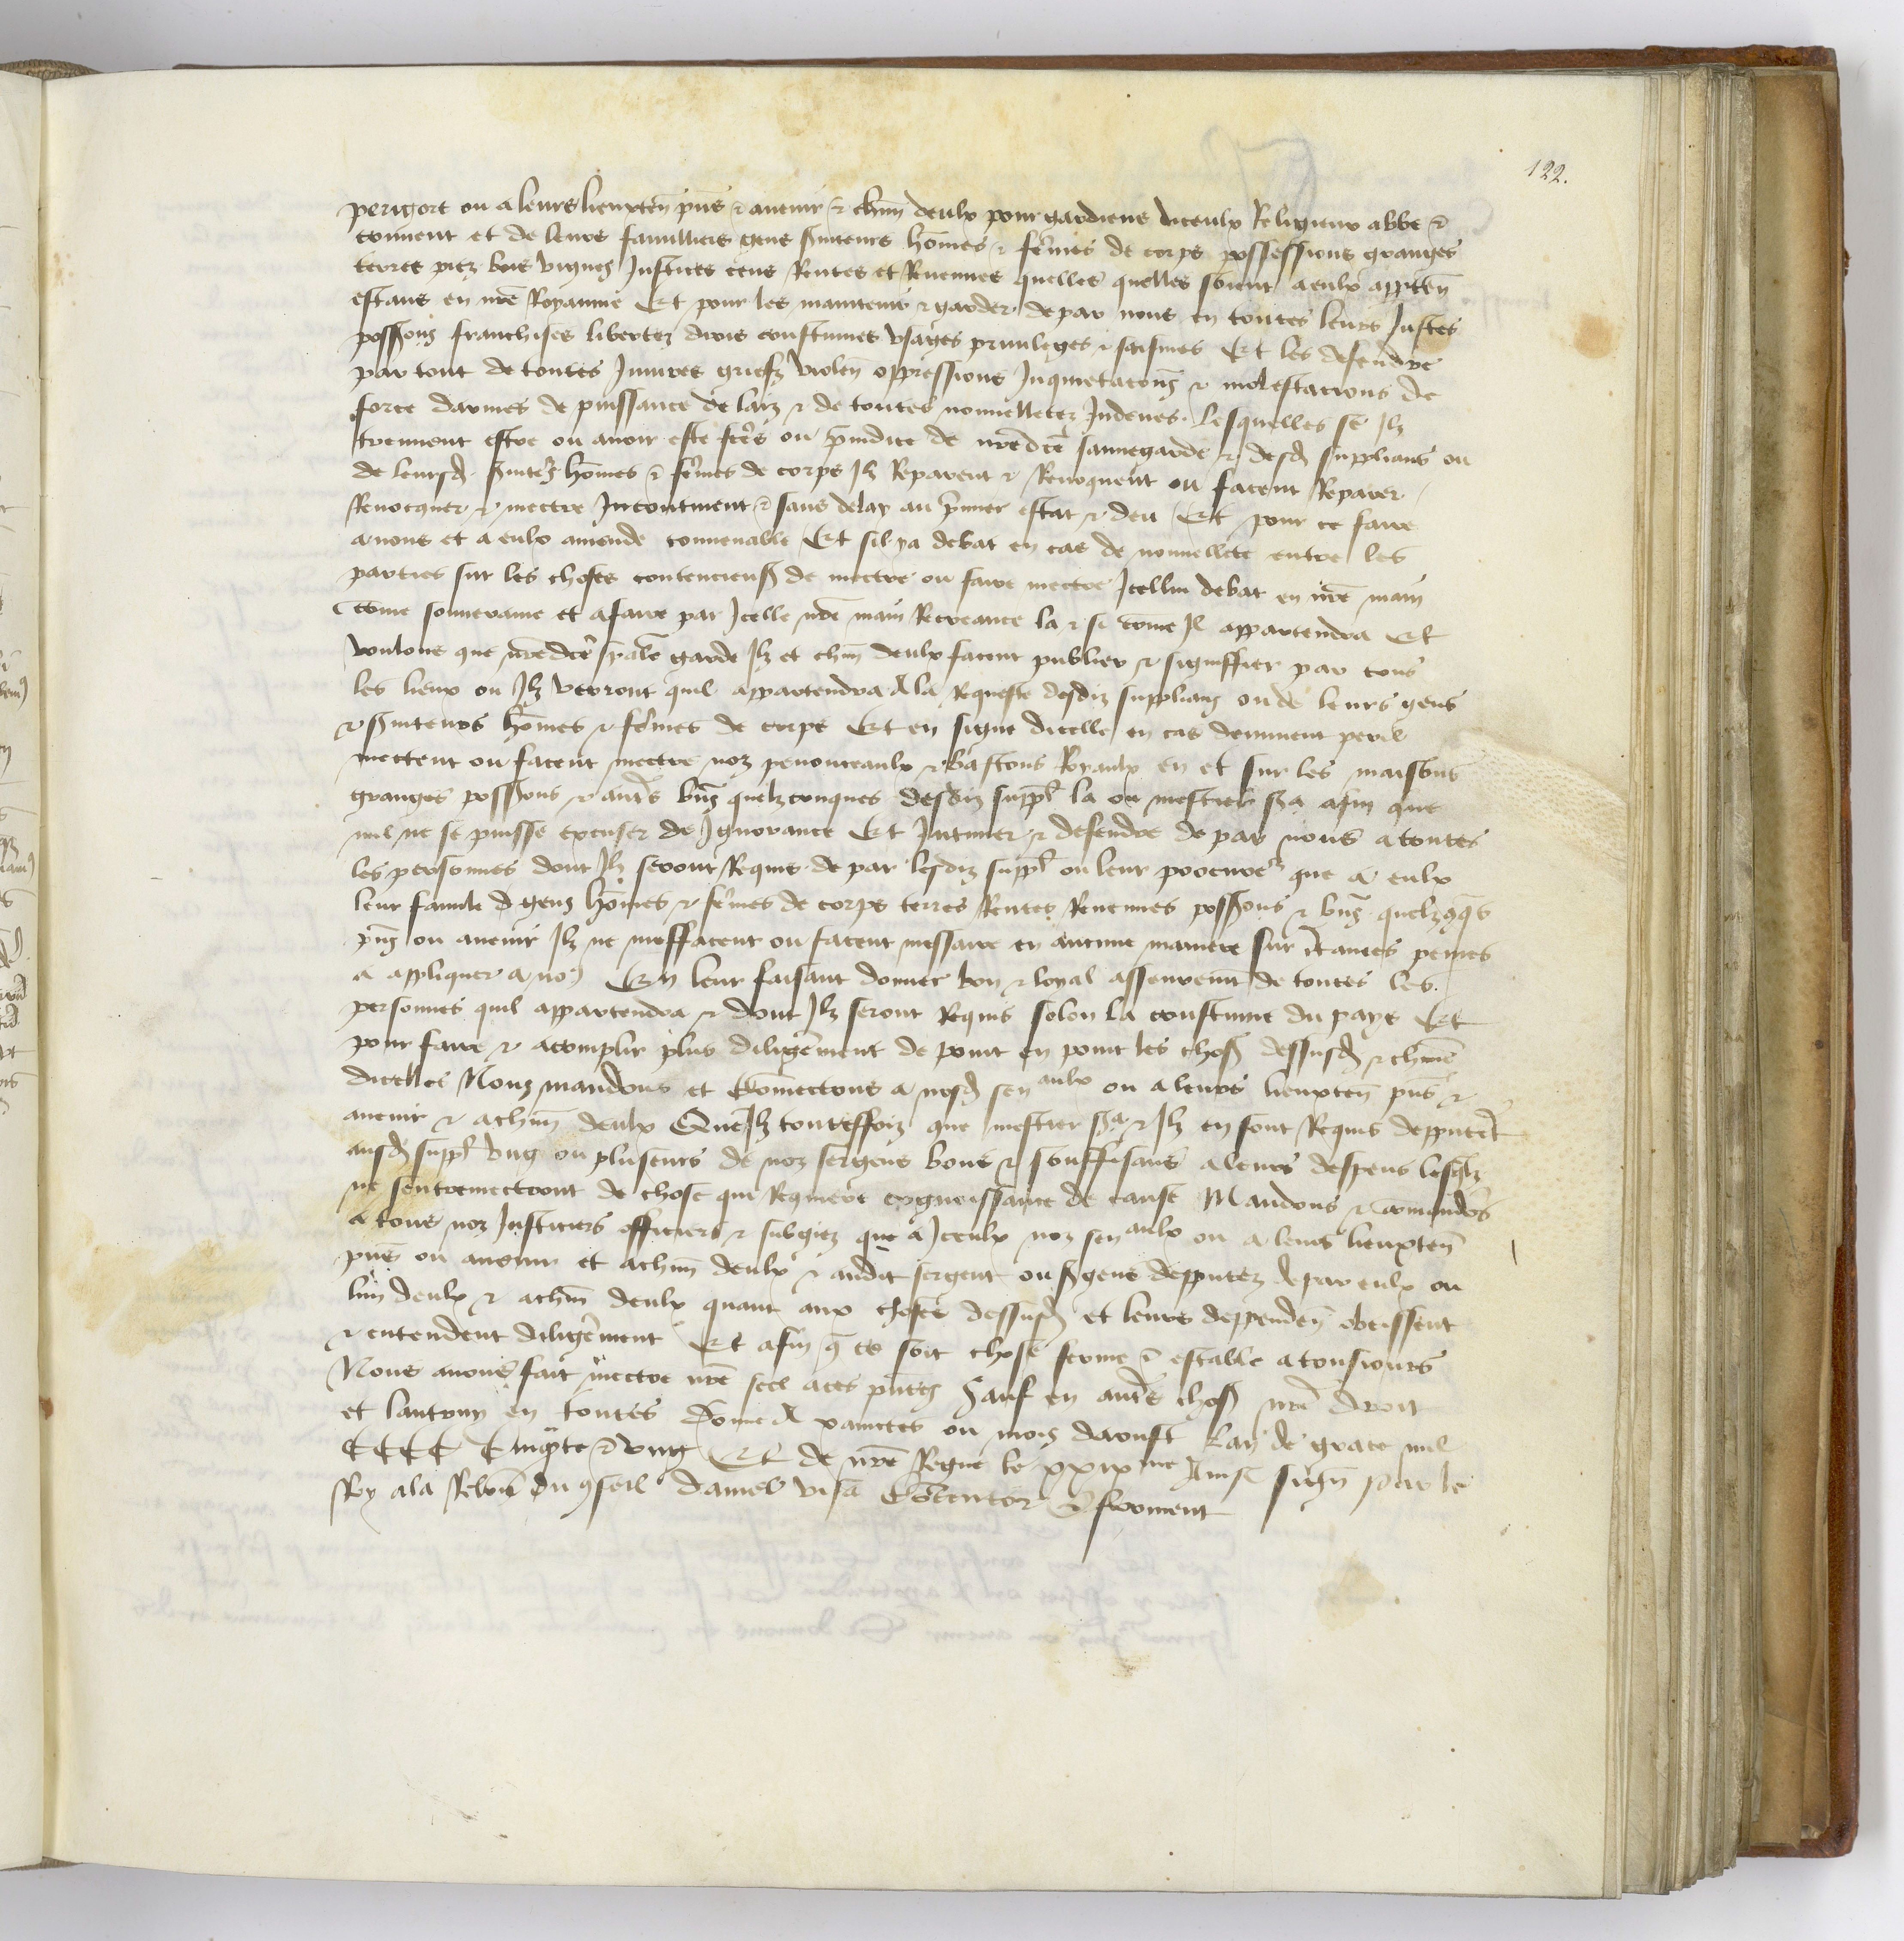 122.
perigort ou a leurs lieuxten̄ pn̄s & auenir & chūn deulx pour gardiens diceulx Religieux abbe &
conuent et de leurs familliers gens s̄uiteurs hōmes & fem̄es de corps possessions granges
terres prez bois vignes Justices cens Rentes et Reuenues quelles quelles soient a eulx apprten̄
estans en nr̄e Royaume Et pour les maintenir & garder de par nous en toutes leurs Justes
possess̄ons franchises libertez drois coustumes vsages priuileges & saisines Et les defendre
par tout de toutes Iniures griefz violen̄ oppressions Inquietacōns & molestacions de
force darmes de puissance de laiz & de toutes nouuelletez Indeues. Lesquelles se Ilz
treuuent estre ou auoir este fc̄es ou p̄iudice de nr̄e dc̄e sauuegarde & desd. supplians ou
de leursd. s̄uite᷑s hōmes & fem̄es de corps Ilz Reparent & Reuoquent ou facent Reparer
Reuocquer & mectre Incontinent & sans delay au p̄mier estat & deu Et pour ce faire
a nous et a eulx amende conuenable Et sil ya debat en cas de nouuellete entre les
parties sur les choses contencieus̄ de mectre ou faire mectre Icellui debat en nr̄e main
cōme souueraine et a faire par Icelle nr̄e main Recreance la & si cōme Il appartendra Et
voulons que nr̄e dc̄e sp̄ale garde Ilz et chūn deulx facent publier & signiffier par tous
les lieux ou Ilz verront quil appartendra A la Requeste desdiz supplians ou de leurs gens
& s̄uiteurs hōmes & fem̄es de corps Et en signe dicelle en cas deminent peril
mectent ou facent mectre noz penonceaulx & bastons Royaulx en et sur les maisons
granges possess̄ons & aut̄s bn̄s quelzconques desdiz suppl̄ la ou mestier s̄a afin que
nul ne se puisse excuser de Ignorance Et Intimer & defendre de par nous a toutes
les personnes dont Ilz seront Requis de par lesdiz suppl̄ ou leur procure᷑ que a eulx
leur famile d gens hōmes & fem̄es de corps terres Rentes Reuenues possess̄ons & bn̄s quelz9q̄s
pn̄s ou auenir Ilz ne meffacent ou facent meffaire en aucune maniere sur c̄taines peines
a appliquer a no9 En leur faisant donner bon & loyal asseurem̄t de toutes les
personnes quil appartendra & dont Ilz seront Requis selon la coustume du pays Et
pour faire & acomplir plus diligēment de point en point les chos̄ dessusd. & chūne
dicelles Nous mandons et Cōmectons a nosd. sen aulx ou a leurs lieuxten̄ pn̄s &
auenir & a chūn deulx Que Ilz toutesfoiz que mestier s̄a & Ilz en sont Requis depputēt
ausd. suppl̄ vng ou pluseurs de noz sergens bons & souffisans a leurs despens lesq̄lz
ne sentremectront de chose qui Requiere cognoissance de cause Mandons & cōmandōs
a tous noz Justiciers officiers & subgiez que a Iceulx noz sen aulx ou a leurs lieuxten̄
pn̄s ou auenir et a chūn deulx & audit sergent ou s̄gens depputez de par eulx ou
lun deulx & a chūn deulx quant aux choses dessusd. et leurs deppenden̄ obeissent
& entendent diligēment Et afin q̄ ce soit chose ferme & estable a tousiours
Nous auons fait mectre nr̄e seel a ces pn̄tes Sauf en aut̄s chos̄ nr̄e droit
et lautruy en toutes Donne A xainctes ou mois daoust Lan de grace mil
CCCC Cinqūte & vng Et de nr̄e Regne le xxix me Ainsi sign̄ par le
Roy a la Relōn du 9seil daniel visa Cōtentor E froment